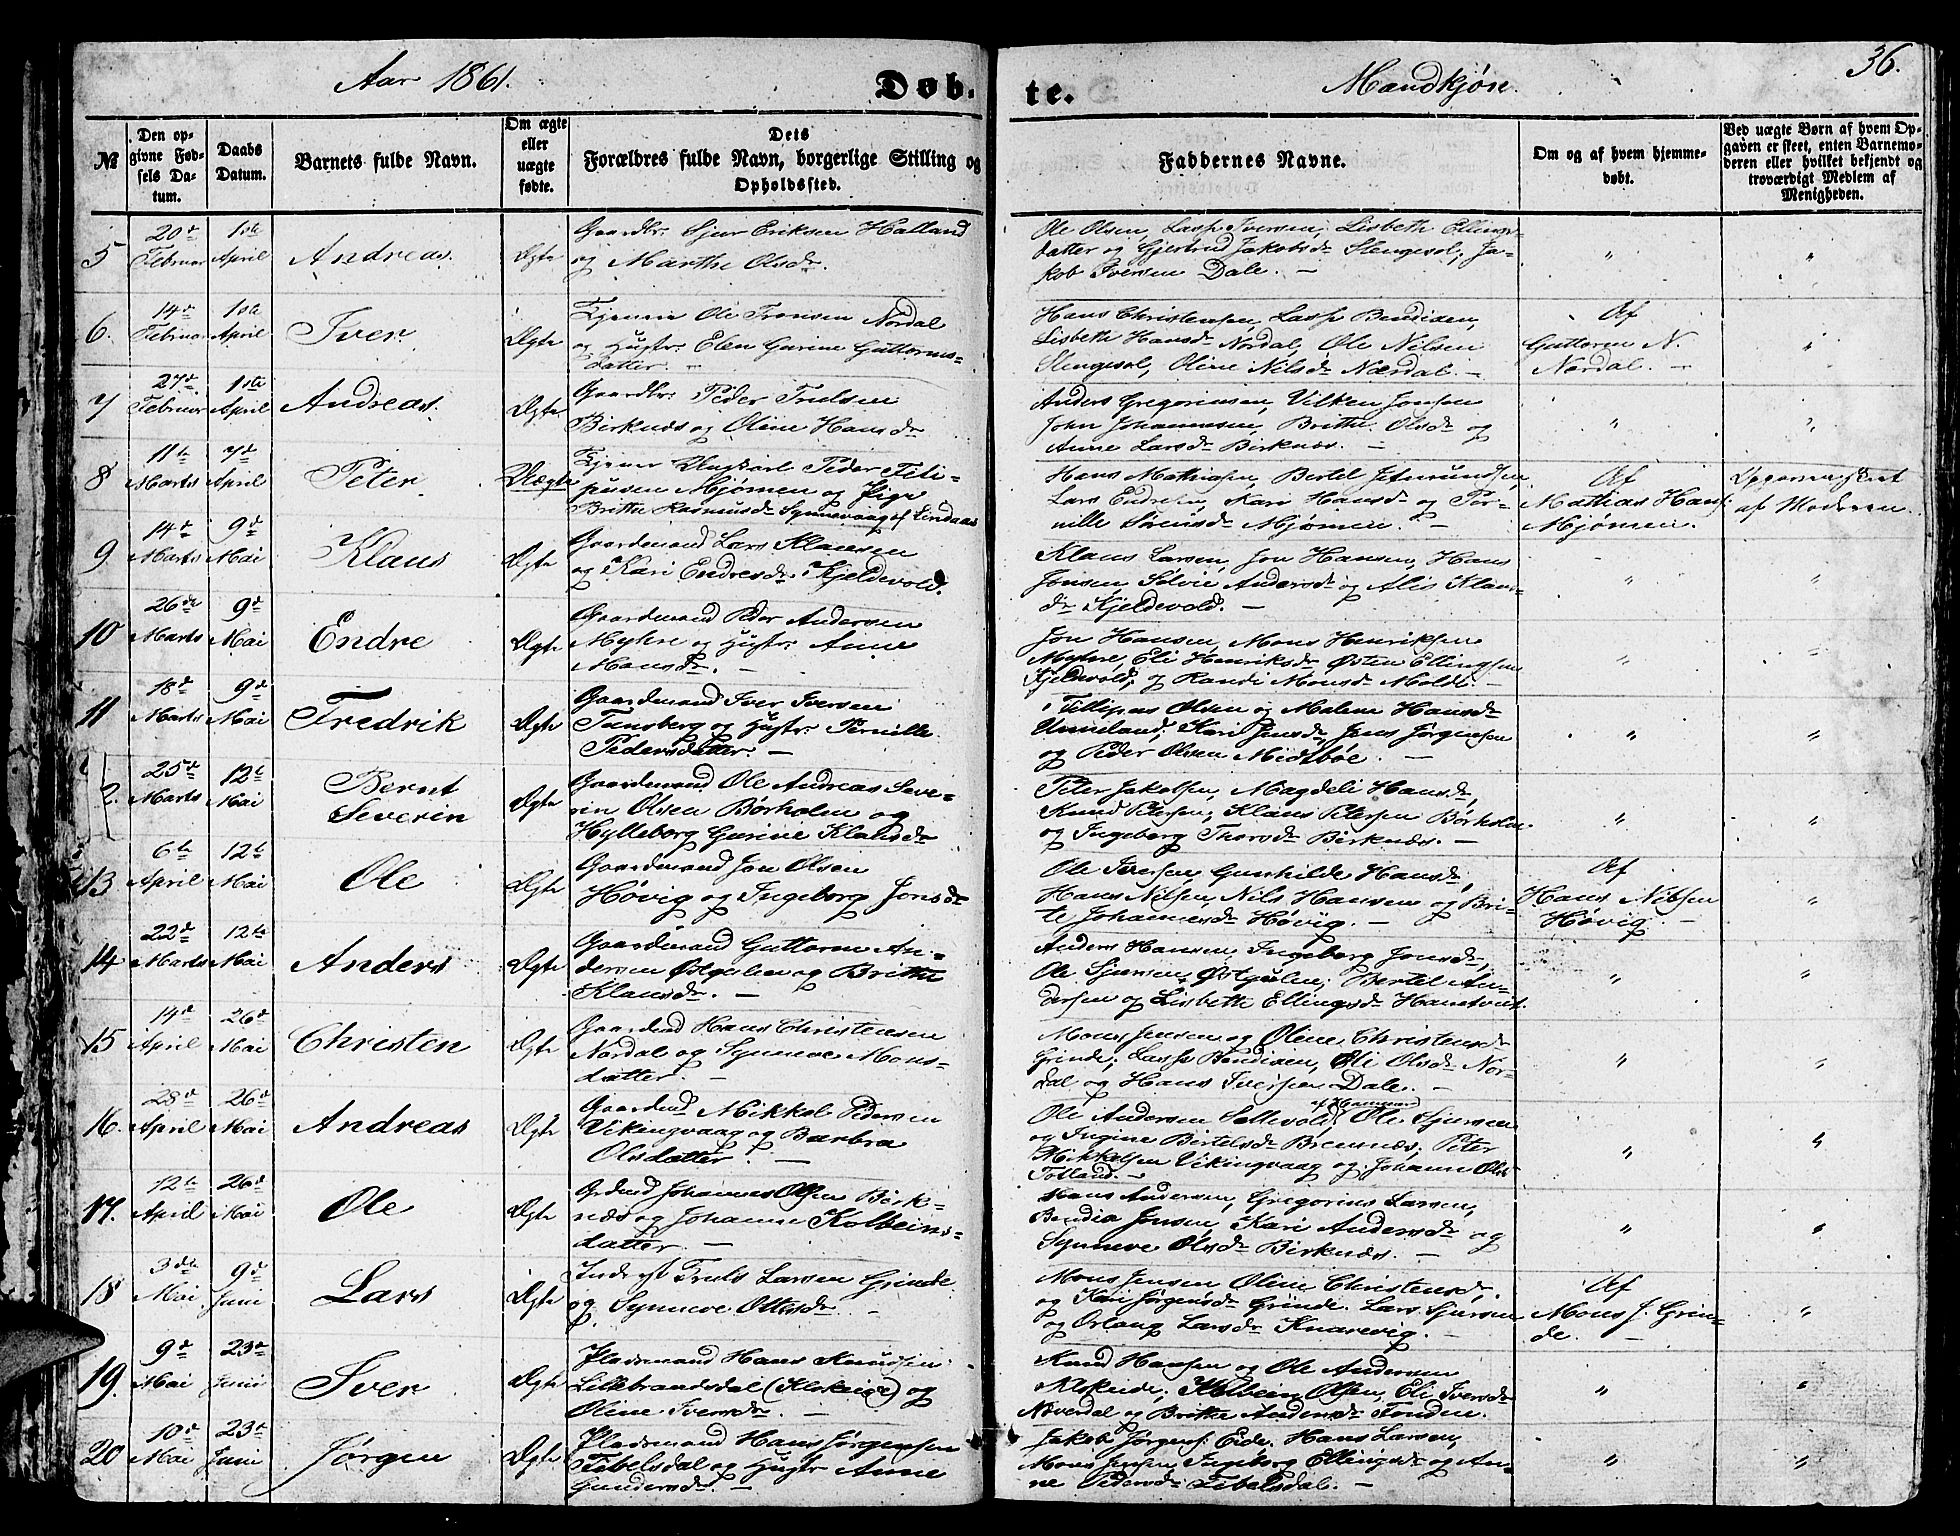 Aar 1861.
Døb-
te.
Mandkjøn.
36.
No
Den opgivne Fødsels Datum.
Daabs Datum.
Barnets fulde Navn.
Om ægte eller uægte fødte.
Dets Forældres fulde Navn, borgerlige Stilling og Opholdssted.
Faddernes Navne.
Om og af hvem hjemmedøbt.
Ved uægte Børn af hvem Opgaven er skeet, enten Barnemoderen eller hvilket bekjendt og troværdigt Medlem af Menigheden.
5 20de Februar 1ste April Andreas. Ægte
Gaardbr. Sjur Eriksen Halland
og Marthe Olsdr.
Ole Olsen, Lasse Iversen, Lisbeth Ellings-
datter og Gjertrud Jakobsdr Slengesol; Ja-
kob Iversen Dale. —
6. 14de Februar 1ste April Iver Ægte
Ole Nordal
og Hustr. Elen Gurine Guttorms-
datter. —
Hans Christensen, Lasse Bendixen,
Lisbeth Hansdr Nordal, Ole Nilsen
Slengesol, Oline Nilsdr Nordal. —
Af
Guttorm N.
Nordal. —
7 27de Februar 1ste April Andreas. Ægte
Gaardbr. Peder Trulsen
Birknæs og Oline Hansdr
Anders Gregoriusen, Vilken Jonsen
John Johannesen, Britha Olsdr og
Anne Larsdr Birknæs. —
8 11te Marts 7de April Peter Uægte
Tjener Ungkarl Peder Feti-
pusen Mjømen og Pige
Brithe Rasmusdr Synnevaag af Lindaas
Hans Mathiasen, Bertel Jetmundsen
Lars Endresen, Kari Hansdr og Per-
nille Sørensdr Mjømen. —
Af
Mathias Hans.
Mjømen.
Opgaven skeet
af Moderen.
9 14de Marts 9de Mai Klaus Ægte
Gaardmand Lars Klausen
og Kari Endresdr. Kjeldevold.
Klaus Larsen, Jon Hansen, Hans
Jonsen, Sølvie Andersdr og Alis Klaus-
dr Kjeldevold. —
10 26de Marts 9de Mai Endre Ægte
Gaardmand Peder Andersen
Myhre og Hustr. Anne
Monsdr. —
Jon Hansen, Mons Henriksen
Myhre, Eli Henriksdr Østen Ellingsen
Kjeldevold, og Randi Monsdr Molde. —
11 18de Marts 9de Mai Fredrik Ægte
Gaardmand Iver Iversen
Tensberg og Hustr. Pernille
Pedersdatter. —
Fillipus Olsen og Malene Hansdr
Kari Jensdr, Jens Jørgensen
og Peder Olsen Midtbøe. —
12. 25de Marts 12te Mai Bernt
Severin Ægte
Gaardmand Ole Andreas Seve-
rin Olsen Børholm og
Hylleborg Gurine Klausdr
Peter Jakobsen, Magdeli Hansdr,
Knud Petersen, Klaus Petersen Børholm
og Ingeborg Thorsdr Birknæs. —
13 6te April 12te Mai Ole Ægte
Gaardmand Jon Olsen
Høvig og Ingeborg Jonsdr
Ole Iversen Gunhilde Hansdr,
Hans Nilsen, Nils Hansen og Bri-
te Johannesdr Høvig. —
Af
Hans Nilsen
Høvig. —
14 22de Marts 12te Mai Anders Ægte
Gaardmand Guttorm An-
dersen Østgulen og Brithe
Klausdr. —
Anders Hansen, Ingeborg Jonsdr,
Ole Sjursen, Østgulen; Bertel An-
dersen og Lisbeth Ellingsdr Hantveit.
15 14de April 26de Mai Christen Ægte
Gaardmd Hans Christensen
Nordal og Synneve Mons-
datter. —
Mons Jensen og Oline Christensdr
Grinde; Lasse Bendixen, Eli Olsdr Nor-
dal og Hans Iversen Dale. —
16. 28de April 26de Mai Andreas Ægte
Gaardmd Mikkel Pedersen
Vikingvaag og Barbra
Olsdatter. —
Ole Andersen Sellevold, Ole Sjursen
og Ingine Bertelsdr Brennæs; Peter
Mikkelsen Vikingvaag og Johanne Ols
Totland. —
17. 12te April 26de Mai Ole Ægte
Grdmd Johannes Olsen Birk-
næs og Johanne Kolbeins-
datter. —
Hans Andersen, Gregorius Larsen,
Bendix Jonsen, Kari Andersdr og
Synneve Olsdr Birknæs. —
18 3die Mai 9de Juni Lars Ægte
Inderst Truls Larsen Grinde
og Synneve Ottesdr. —
Mons Jensen Oline Christensdr,
og Kari Jørgensdr Grinde. Lars Sjursen
og Orlaug Larsdr Knarevig. —
Af
Mons J. Grin-
de. —
19. 9de Mai 23de Juni Iver Ægte
Pladsmand Hans Knudsen
Lillebrandsdal (Kloheie) og
Oline Iversdr. —
Knud Hansen og Ole Andersen
Kolbein Olsen, Eli Iversdr
Næverdal og Brithe Andersdr Tonden.
20 10de Mai 23de Juni Jørgen Ægte
Pladsmand Hans Jørgensen
Tibelsdal og Hustr Anne
Gundersdr. —
Jakob Jørgens. Eide. Hans Larsen,
Mons Jensen, Ingeborg Ellingsdr og An-
ne Pedersdr Tibelsdal. —